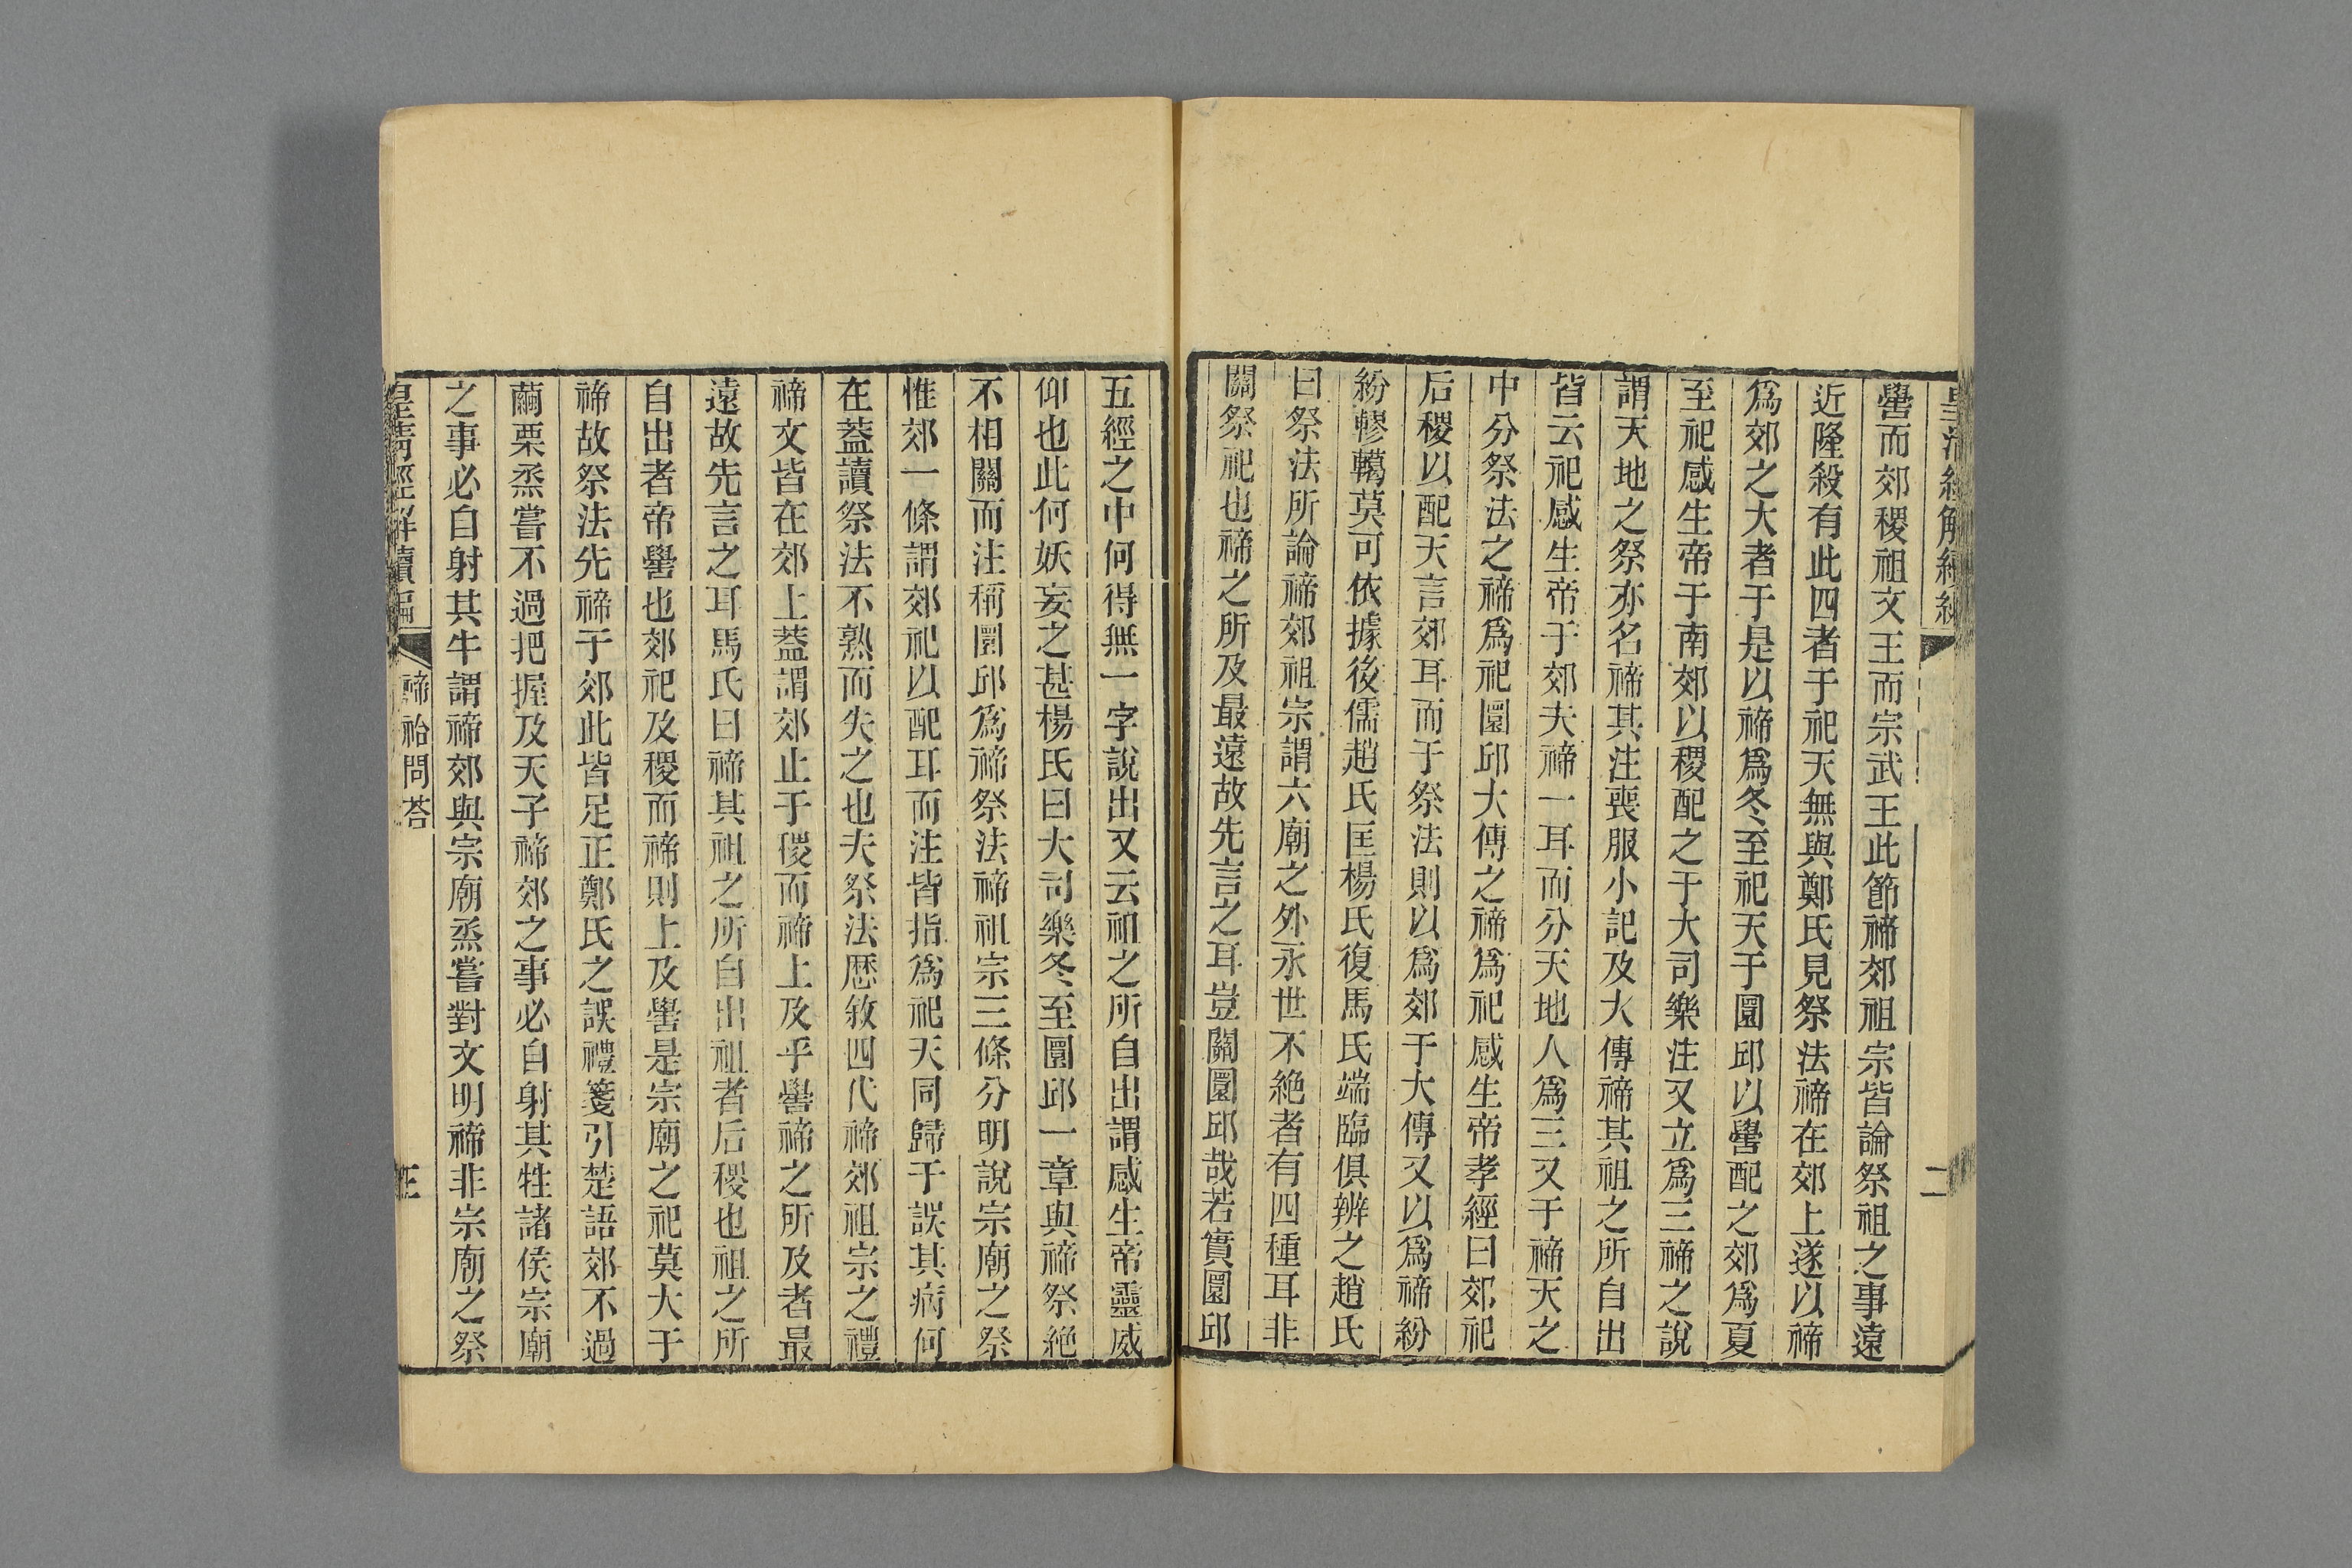 嚳而郊稷祖文王而宗武王此節禘郊祖宗皆論祭祖之事遠
近隆殺有此四者于祀天無與鄭氏見祭法禘在郊上遂以禘
爲郊之大者于是以禘爲冬至祀天于圜邱以嚳配之郊爲夏
至祀感生帝于南郊以稷配之于大司樂注又立爲三禘之說
謂天地之祭亦名禘其注喪服小記及大傳禘其祖之所自出
皆云祀感生帝于郊夫禘一耳而分天地人爲三又于禘天之
中分祭法之禘爲祀圜邱大傳之禘爲祀感生帝孝經曰郊祀
后稷以配天言郊耳而于祭法則以爲郊于大傳又以爲禘紛
紛轇轕莫可依據後儒趙氏匡楊氏復馬氏端臨俱辨之趙氏
曰祭法所論禘郊祖宗謂六廟之外永世不絶者有四種耳非
關祭祀也禘之所及最遠故先言之耳豈關圜邱哉若實圜邱
五經之中何得無一字說出又云祖之所自出謂感生帝靈威
仰也此何妖妄之甚楊氏曰大司樂冬至圜邱一章與禘祭絶
不相關而注稱圜邱爲禘祭法禘祖宗三條分明說宗廟之祭
惟郊一條謂郊祀以配耳而注皆指爲祀天同歸于誤其病何
在蓋讀祭法不熟而失之也夫祭法歴敘四代禘郊祖宗之禮
禘文皆在郊上蓋謂郊止于稷而禘上及乎嚳禘之所及者最
遠故先言之耳馬氏曰禘其祖之所自出祖者后稷也祖之所
自出者帝嚳也郊祀及稷而禘則上及嚳是宗廟之祀莫大于
禘故祭法先禘于郊此皆足正鄭氏之誤禮箋引楚語郊不過
繭栗烝嘗不過把握及天子禘郊之事必自射其牲諸侯宗廟
之事必自射其牛謂禘郊與宗廟烝嘗對文明禘非宗廟之祭
皇清經解續編 禘祫問荅